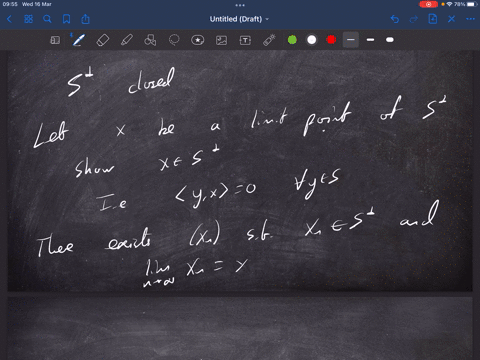 09:55 Wed 16 Mar
78%
Untitled (Draft)
S⊥ closed
Let x be a limit point of S⊥
show x ∈ S⊥
I.e <y,x> = 0 ∀y∈S
There exists (xₙ) s.t. xₙ ∈ S⊥ and
lim xₙ = x
n→∞